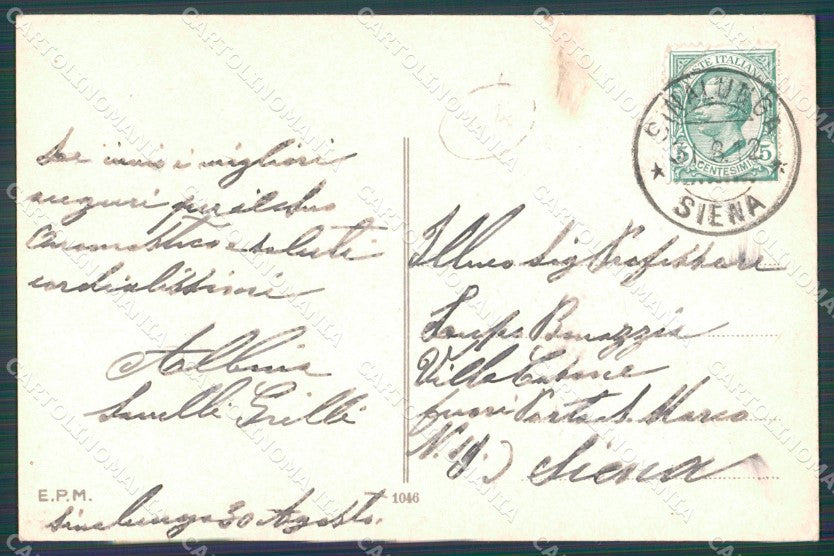 invio i migliori
auguri per il suo
Onomastico e saluti
cordialissimi
Albina
Savelli Grilli
E.P.M.
Sinalunga 30 Agosto.
1046
POSTE ITALIANE
5 CENTESIMI 5
SINALUNGA
SIENA
Illmo Sig Professore
Villa
fuori Porta S. Marco
Siena
CARTOLINOMANIA